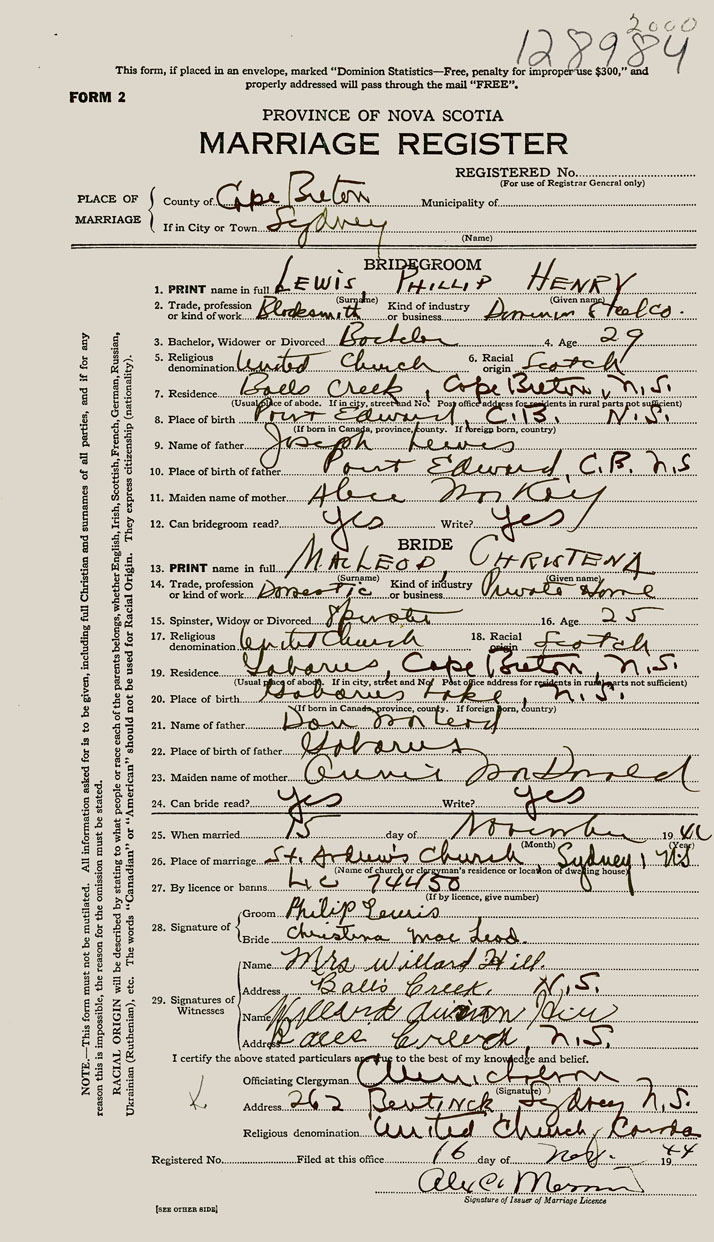 2000
128984
This form, if placed in an envelope, marked "Dominion Statistics—Free, penalty for improper use $300," and
properly addressed will pass through the mail "FREE".
FORM 2
PROVINCE OF NOVA SCOTIA
MARRIAGE REGISTER
REGISTERED No.
(For use of Registrar General only)
PLACE OF MARRIAGE
County of Cape Breton Municipality of
If in City or Town Sydney
(Name)
BRIDEGROOM
1. PRINT name in full LEWIS, PHILLIP HENRY
(Surname) (Given name)
2. Trade, profession or kind of work Blacksmith Kind of industry or business Dominion Steel Co.
3. Bachelor, Widower or Divorced Bachelor 4. Age 29
5. Religious denomination United Church 6. Racial origin Scotch
7. Residence Balls Creek, Cape Breton, N.S.
(Usual place of abode. If in city, street and No. Post office address for residents in rural parts not sufficient)
8. Place of birth Point Edward, C.B. N.S.
(If born in Canada, province, county. If foreign born, country)
9. Name of father Joseph Lewis
10. Place of birth of father Point Edward, C.B. N.S
11. Maiden name of mother Alice McKay
12. Can bridegroom read? yes Write? yes
BRIDE
13. PRINT name in full MACLEOD, CHRISTENA
(Surname) (Given name)
14. Trade, profession or kind of work Domestic Kind of industry or business Private Home
15. Spinster, Widow or Divorced Spinster 16. Age 25
17. Religious denomination United Church 18. Racial origin Scotch
19. Residence Gabarus, Cape Breton, N.S.
(Usual place of abode. If in city, street and No. Post office address for residents in rural parts not sufficient)
20. Place of birth Gabarus Lake, N.S.
(If born in Canada, province, county. If foreign born, country)
21. Name of father Dan McLeod
22. Place of birth of father Gabarus
23. Maiden name of mother Annie McDonald
24. Can bride read? yes Write? yes
25. When married 15 day of November 1944
(Month) (Year)
26. Place of marriage St. Andrew's Church, Sydney, N.S
(Name of church or clergyman's residence or location of dwelling house)
27. By licence or banns Lic 74450
(If by licence, give number)
28. Signature of
Groom Philip Lewis
Bride Christina Mac Leod.
29. Signatures of Witnesses
Name Mrs Willard Hill.
Address Balls Creek, N.S.
Name Hill
Address Balls Creek, N.S.
I certify the above stated particulars are true to the best of my knowledge and belief.
Officiating Clergyman
(Signature)
Address 262 Bentinck Sydney N.S.
Religious denomination United Church, Canada
Registered No. Filed at this office 16 day of Nov. 1944
Alex
Signature of Issuer of Marriage Licence
[SEE OTHER SIDE]
NOTE.—This form must not be mutilated. All information asked for is to be given, including full Christian and surnames of all parties, and if for any
reason this is impossible, the reason for the omission must be stated.
RACIAL ORIGIN will be described by stating to what people or race each of the parents belongs, whether English, Irish, Scottish, French, German, Russian,
Ukrainian (Ruthenian), etc. The words "Canadian" or "American" should not be used for Racial Origin. They express citizenship (nationality).